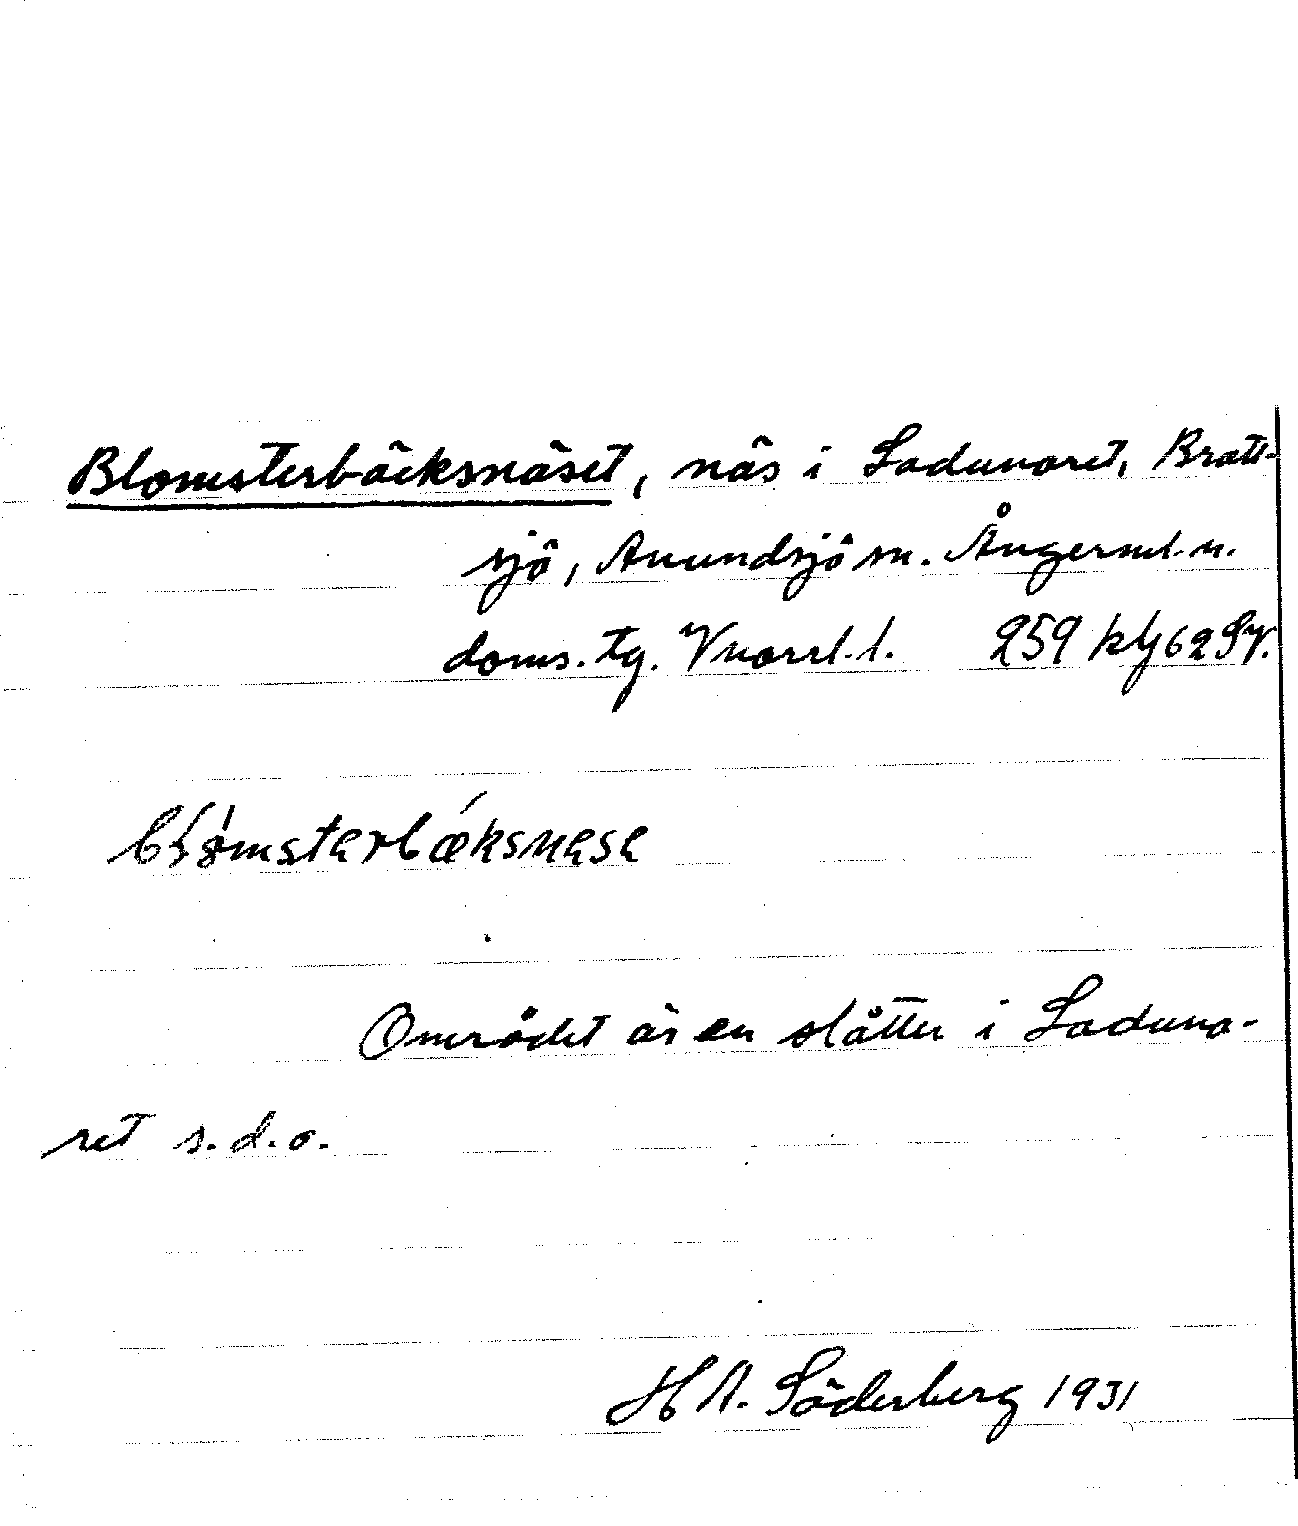 Blomsterbäcksnäset, näs i Laduvaret, Bratt-
sjö, Anundsjö sn. Ångerml. n.
doms. tg. Vnorrl. l. 259 kbg 62 SV.
blømstərbæksnesə
Området är en slåtter i Laduva-
ret s. d. o.
H A. Söderberg 1931